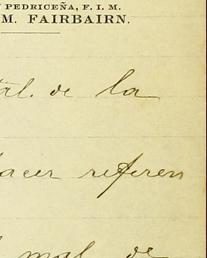 PEDRICEÑA, F. I. M.
M. FAIRBAIRN.
tal. de la
hacer referen
mal de